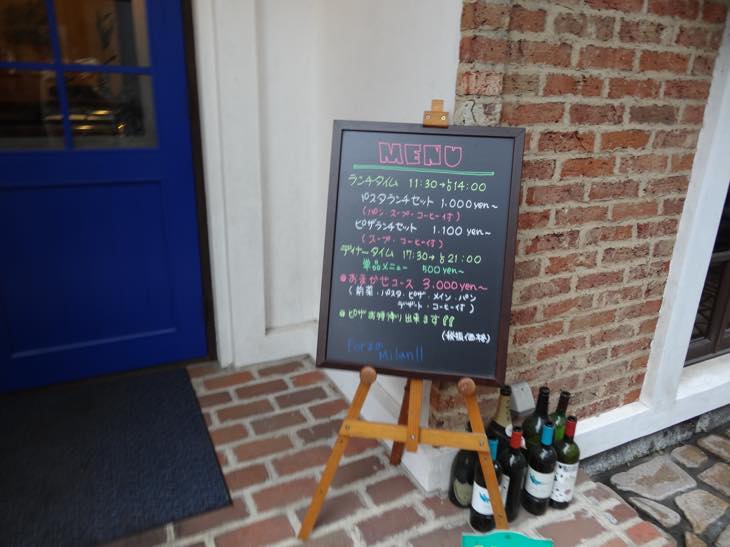 MENU
ランチタイム 11:30→L.O 14:00
パスタランチセット 1,000yen～
(パン・スープ・コーヒー付)
ピザランチセット 1,100yen～
(スープ・コーヒー付)
ディナータイム 17:30→L.O 21:00
単品メニュー 500yen～
●おまかせコース 3,000yen～
(前菜・パスタ・ピザ・メイン・パン
デザート・コーヒー付)
●ピザお持帰り出来ます!!
(税抜価格)
Forza
Milan!!